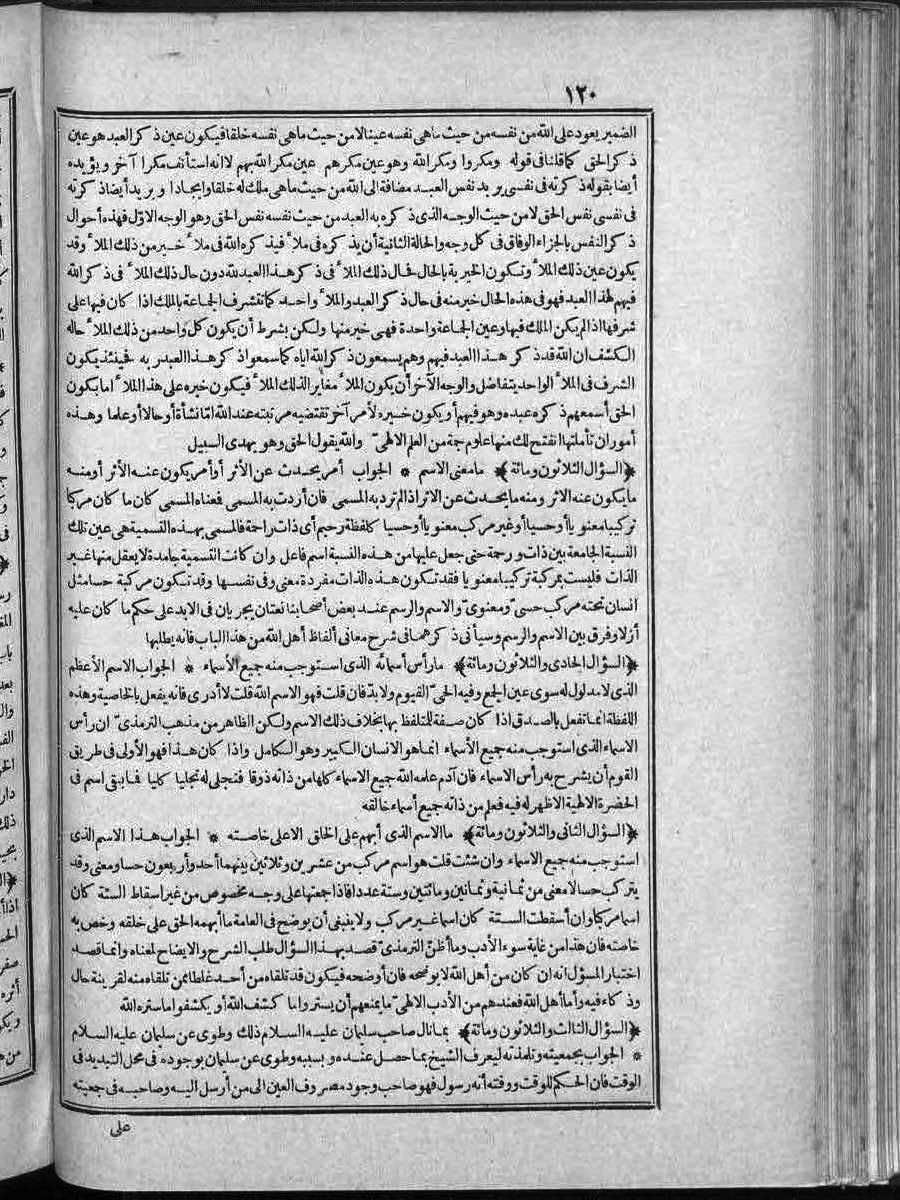 ١٢٠
الضمير يعود على الله من نفسه من حيث ماهى نفسه عينا لا من حيث ماهى نفسه خلقا فيكون عين ذكر العبد هو عين
ذكر الحق كما قلنا فى قوله ومكروا ومكر الله وهو عين مكرهم عين مكر الله بهم لا انه استأنف مكرا آخر ويؤيده
أيضا بقوله ذكرته فى نفسى يريد نفس العبد مضافة الى الله من حيث ماهى ملك له خلقا وايجادا ويريد أيضا ذكرته
فى نفسى نفس الحق لا من حيث الوجه الذى ذكره به العبد من حيث نفسه نفس الحق وهو الوجه الاوّل فهذه أحوال
ذكر النفس بالجزاء الوفاق فى كل وجه والحالة الثانية أن يذكره فى ملأ فيذكره الله فى ملأ خير من ذلك الملأ وقد
يكون عين ذلك الملأ وتكون الخيرية بالحال فحال ذلك الملأ فى ذكر هذا العبد لله دون حال ذلك الملأ فى ذكر الله
فيهم لهذا العبد فهو فى هذه الحال خير منه فى حال ذكر العبد والملأ واحد كما تشرف الجاعة بالملك اذا كان فيها على
شرفها اذا لم يكن الملك فيها وعين الجاعة واحدة فهى خير منها ولكن بشرط أن يكون كل واحد من ذلك الملأ حاله
الكشف ان الله قد ذكر هذا العبد فيهم وهم يسمعون ذكر الله اياه كما سمعوا ذكر هذا العبد ربه فحينئذ يكون
الشرف فى الملأ الواحد يتفاضل والوجه الآخر أن يكون الملأ مغاير الذلك الملأ فيكون خيره على هذا الملأ اما بكون
الحق أسمعهم ذكره عبده وهو فيهم أو يكون خيره لأمر آخر تقتضيه مرتبته عند الله امّا نشأة أو حالا أو علما وهذه
أمور ان تأملتها انفتح لك منها علوم جة من العلم الالهىّ والله يقول الحق وهو يهدى السبيل
﴿السؤال الثلاثون ومائة﴾ ما معنى الاسم * الجواب أمر يحدث عن الأثر أو أمر يكون عنه الأثر أو منه
ما يكون عنه الاثر ومنه ما يحدث عن الاثر اذا لم ترد به المسمى فان أردت به المسمى فمعناه المسمى كان ما كان مركبا
تركيبا معنويا أو حسيا أو غير مركب معنويا أو حسيا كلفظة رحيم أى ذات راحة فالمسمى بهذه التسمية هى عين تلك
النسبة الجامعة بين ذات ورحمة حتى جعل عليها من هذه النسبة اسم فاعل وان كانت التسمية جامدة لا يعقل منها غير
الذات فليست بمركبة تركيبا معنويا فقد تكون هذه الذات مفردة معنى وفى نفسها وقد تكون مركبة حسا مثل
انسان تحته مركب حسىّ ومعنوىّ والاسم والرسم عند بعض أصحابنا نعتان يجريان فى الابد على حكم ما كان عليه
أزلا وفرق بين الاسم والرسم وسيأتى ذكرهما فى شرح معانى ألفاظ أهل الله من هذا الباب فانه يطلبها
﴿السؤال الحادى والثلاثون ومائة﴾ ما رأس أسمائه الذى استوجب منه جيع الأسماء * الجواب الاسم الأعظم
الذى لا مدلول له سوى عين الجع وفيه الحىّ القيوم ولا بدّ فان قلت فهو الاسم الله قلت لا أدرى فانه يفعل بالخاصية وهذه
اللفظة انما تفعل بالصدق اذا كان صفة للتلفظ بها بخلاف ذلك الاسم ولكن الظاهر من مذهب الترمذىّ ان رأس
الاسماء الذى استوجب منه جيع الأسماء انما هو الانسان الكبير وهو الكامل واذا كان هذا فهو الأولى فى طريق
القوم أن يشرح به رأس الاسماء فان آدم علمه الله جيع الاسماء كلها من ذاته ذوقا فتجلى له تجليا كليا فما بقى اسم فى
الحضرة الالهية الا ظهر له فيه فعلم من ذاته جيع أسماء خالقه
﴿السؤال الثانى والثلاثون ومائة﴾ ما الاسم الذى أبهم على الخلق الا على خاصته * الجواب هذا الاسم الذى
استوجب منه جيع الاسماء وان شئت قلت هو اسم مركب من عشرين وثلاثين بينهما أحد وأربعون حسا ومعنى وقد
يتركب حسا لا معنى من ثمانية وثمانين ومائتين وستة عددا فاذا جعتها على وجه مخصوص من غير اسقاط الستة كان
اسما مركبا وان أسقطت الستة كان اسما غير مركب ولا ينبغى أن يوضح فى العامة ما أبهمه الحق على خلقه وخص به
خاصته فان هذا من غاية سوء الأدب وما أظنّ الترمذىّ قصد بهذا السؤال طلب الشرح والايضاح لمعناه وانما قصد
اختبار المسؤل انه ان كان من أهل الله لا يوضحه فان أوضحه فيكون قد تلقاه من أحد غلطا ممن تلقاه منه لقرينة حال
وذكاء فيه وأما أهل الله فعندهم من الأدب الالهىّ ما يمنعهم أن يستروا ما كشف الله أو يكشفوا ما ستره الله
﴿السؤال الثالث والثلاثون ومائة﴾ بما نال صاحب سليمان عليه السلام ذلك وطوى عن سليمان عليه السلام
* الجواب بجمعيته وتلمذته ليعرف الشيخ بما حصل عنده وبسببه وطوى عن سليمان بوجوده فى محل التبديد فى
الوقت فان الحكم للوقت ووقته أنه رسول فهو صاحب وجود مصروف العين الى من أرسل اليه وصاحبه فى جعيته
على